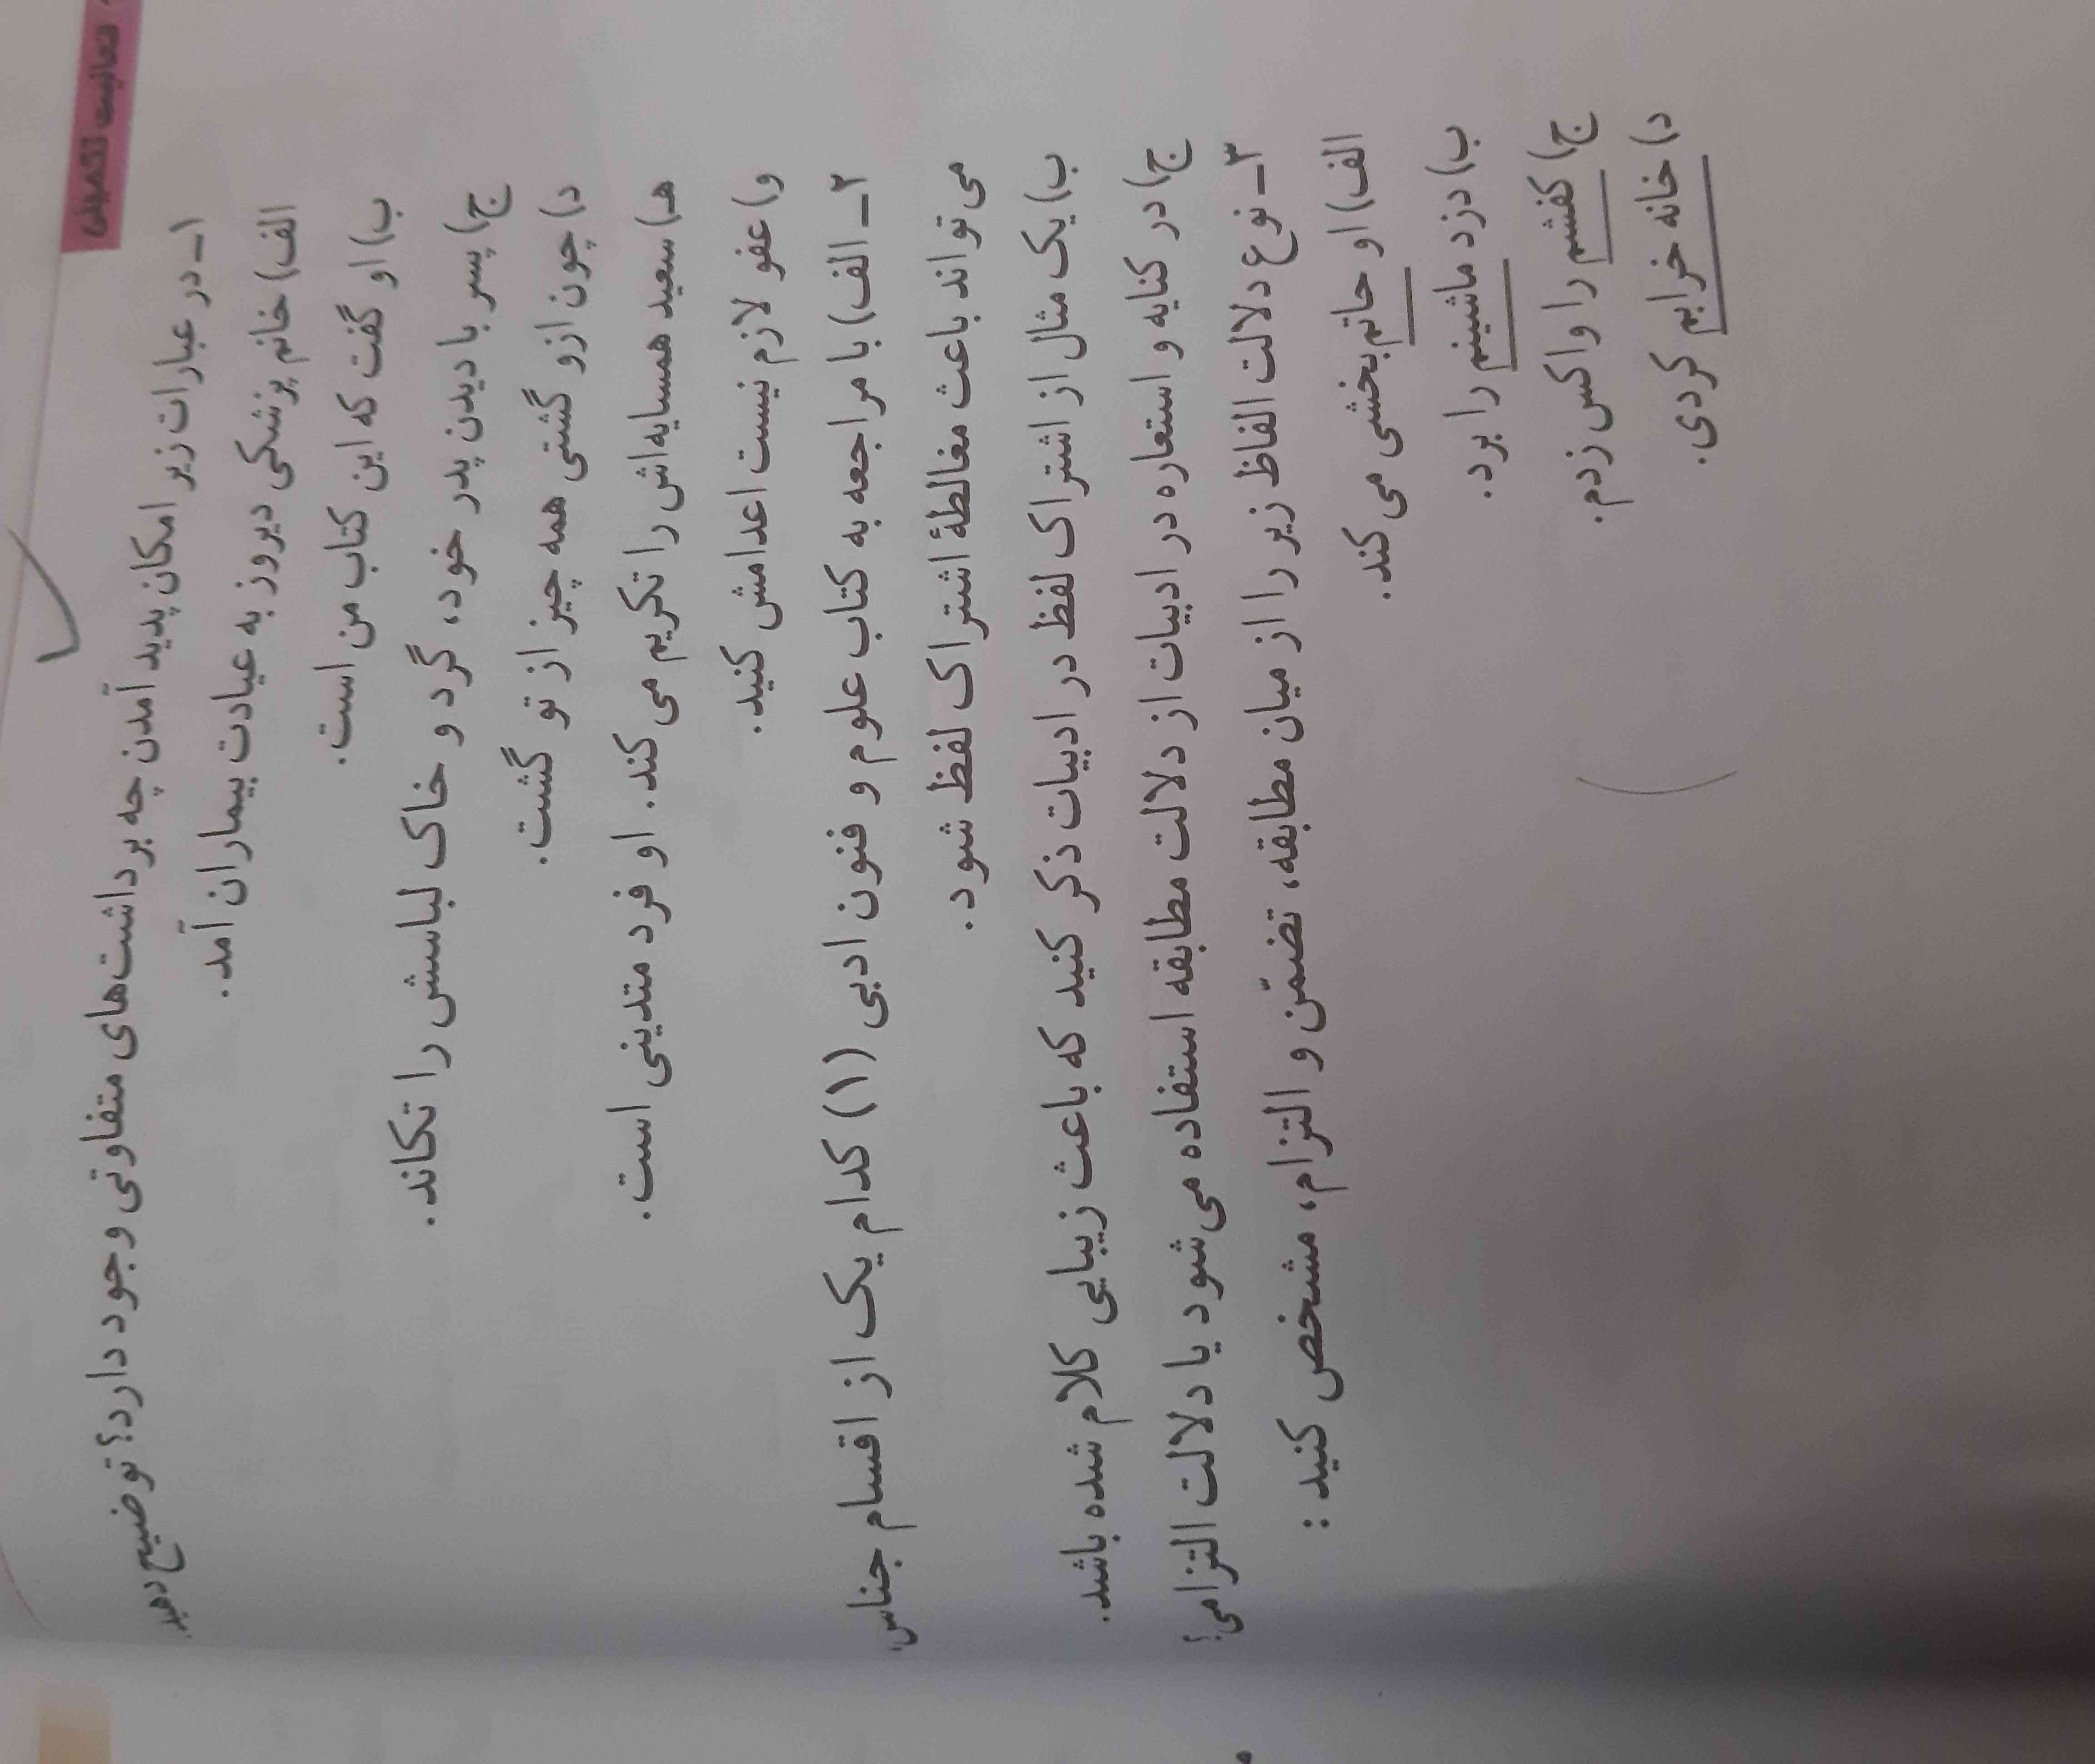 فعالیت تکمیلی
۱ـ در عبارات زیر امکان پدید آمدن چه برداشت‌های متفاوتی وجود دارد؟ توضیح دهید.
الف) خانم پزشکی دیروز به عیادت بیماران آمد.
ب) او گفت که این کتاب من است.
ج) پسر با دیدن پدر خود، گرد و خاک لباسش را تکاند.
د) چون ازو گشتی همه چیز از تو گشت.
هـ) سعید همسایه‌اش را تکریم می‌کند. او فرد متدینی است.
و) عفو لازم نیست اعدامش کنید.
۲ـ الف) با مراجعه به کتاب علوم و فنون ادبی (۱) کدام یک از اقسام جناس
می‌تواند باعث مغالطهٔ اشتراک لفظ شود.
ب) یک مثال از اشتراک لفظ در ادبیات ذکر کنید که باعث زیبایی کلام شده باشد.
ج) در کنایه و استعاره در ادبیات از دلالت مطابقه استفاده می‌شود یا دلالت التزامی؟
۳ـ نوع دلالت الفاظ زیر را از میان مطابقه، تضمّن و التزام، مشخص کنید :
الف) او حاتم‌بخشی می‌کند.
ب) دزد ماشینم را برد.
ج) کفشم را واکس زدم.
د) خانه خرابم کردی.